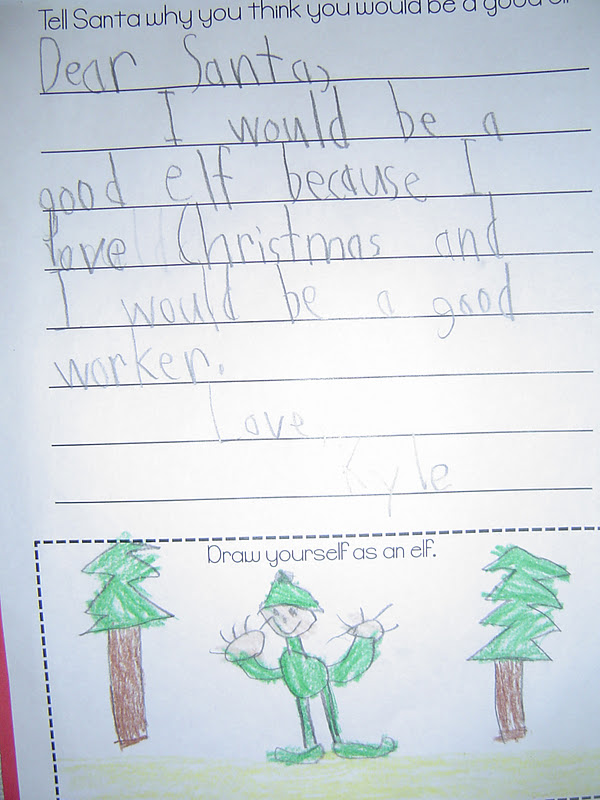 Tell Santa why you think you would be a good elf
Dear Santa,
I would be a
good elf because I
love Christmas and
I would be a good
worker.
Love,
Kyle
Draw yourself as an elf.